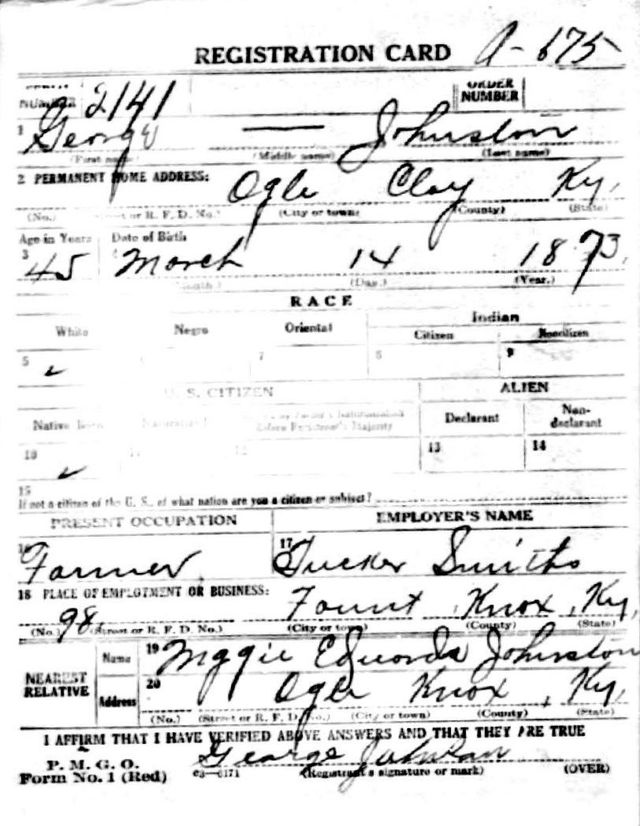 REGISTRATION CARD A-675
NUMBER 2141 ORDER NUMBER
1 George — Johnston
(First name) (Middle name) (Last name)
2 PERMANENT HOME ADDRESS: Ogle Clay Ky.
(No.) (Street or R. F. D. No.) (City or town) (County) (State)
Age in Years Date of Birth
3 45 March 14 1873
(Day.) (Year.)
RACE
White Negro Oriental Indian
Citizen Noncitizen
5 ✓ 7 8 9
U. S. CITIZEN ALIEN
Native Born Declarant Non-declarant
10 ✓ 13 14
15
If not a citizen of the U. S., of what nation are you a citizen or subject?
PRESENT OCCUPATION EMPLOYER'S NAME
16 Farmer 17 Tucker Smiths
18 PLACE OF EMPLOYMENT OR BUSINESS: Fount, Knox, Ky,
(No.) 98. (Street or R. F. D. No.) (City or town) (County) (State)
NEAREST RELATIVE Name 19 Edwards Johnston
Address 20 Ogle Knox, Ky,
(No.) (Street or R. F. D. No.) (City or town) (County) (State)
I AFFIRM THAT I HAVE VERIFIED ABOVE ANSWERS AND THAT THEY ARE TRUE
P. M. G. O.
Form No. 1 (Red) 03—6171 George Johnson (Registrant's signature or mark) (OVER)